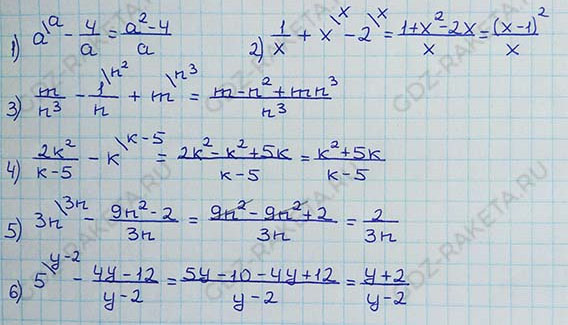 1) a\a - 4/a = (a²-4)/a 2) 1/x + x\x - 2\x = (1+x²-2x)/x = (x-1)²/x
3) m/n³ - 1/n\n² + m\n³ = (m-n²+mn³)/n³
4) 2k²/(k-5) - k\k-5 = (2k²-k²+5k)/(k-5) = (k²+5k)/(k-5)
5) 3n\3n - (9n²-2)/3n = (9n²-9n²+2)/3n = 2/3n
6) 5\y-2 - (4y-12)/(y-2) = (5y-10-4y+12)/(y-2) = (y+2)/(y-2)
GDZ-RAKETA.RU